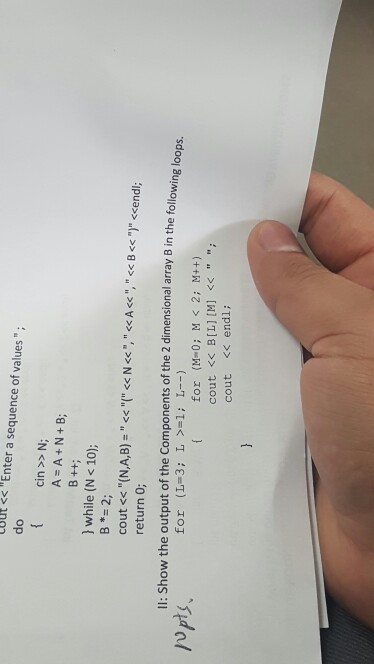 cout << "Enter a sequence of values ";
do
{
cin >> N;
A = A + N + B;
B ++;
} while (N < 10);
B *= 2;
cout << "(N,A,B) = " << "(" << N << "," << A << ", " << B << ")" <<endl;
return 0;
10 pts.
II: Show the output of the Components of the 2 dimensional array B in the following loops.
for (L=3; L >=1; L--)
{ for (M=0; M < 2; M++)
cout << B[L][M] << " ";
cout << endl;
}